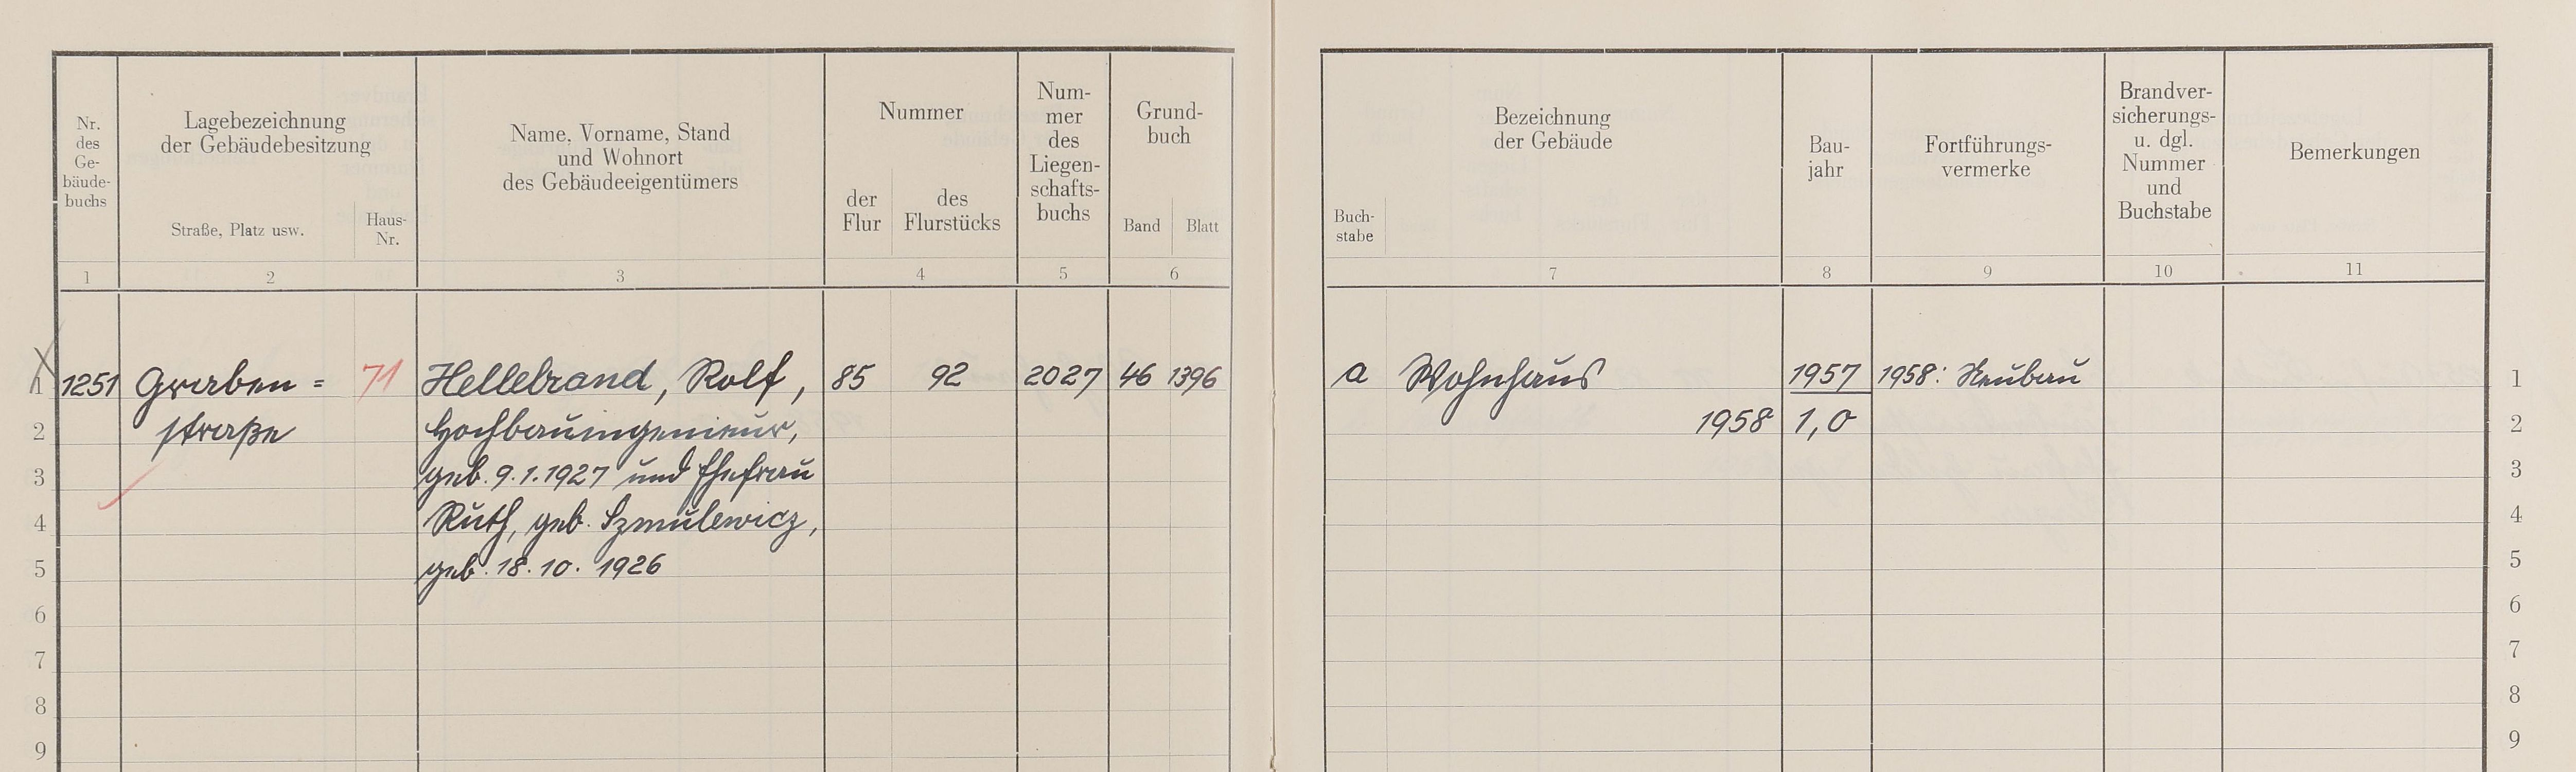 Nr.
des
Ge-
bäude-
buchs
Lagebezeichnung
der Gebäudebesitzung
Straße, Platz usw.
Haus-
Nr.
Name, Vorname, Stand
und Wohnort
des Gebäudeeigentümers
Nummer
der
Flur
des
Flurstücks
Num-
mer
des
Liegen-
schafts-
buchs
Grund-
buch
Band
Blatt
1 2 3 4 5 6
1 1251 Graben= 71 Hellebrand, Rolf, 85 92 2027 46 1396
2 straße Hochbauingenieur,
3 geb. 9.1.1927 und Ehefrau
4 Ruth, geb. Szmulewicz,
5 geb. 18.10.1926
6
7
8
9
Bezeichnung
der Gebäude
Buch-
stabe
Bau-
jahr
Fortführungs-
vermerke
Brandver-
sicherungs-
u. dgl.
Nummer
und
Buchstabe
Bemerkungen
7 8 9 10 11
a Wohnhaus 1957 1958: Neubau 1
1958 1,0 2
3
4
5
6
7
8
9